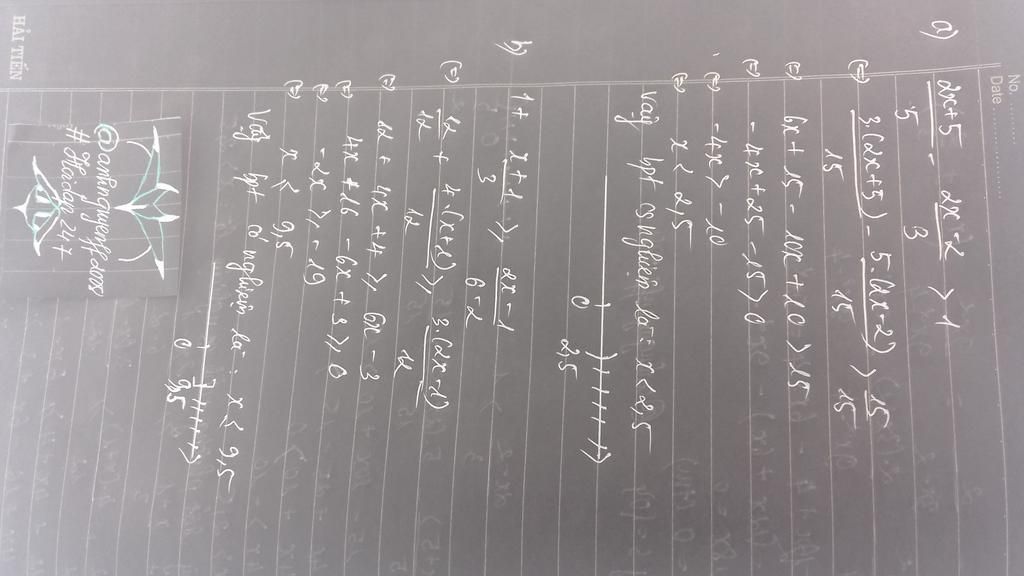 No.
Date
a) \frac{2x+5}{5} - \frac{2x-2}{3} > 1
(=) \frac{3(2x+5)}{15} - \frac{5.(2x-2)}{15} > \frac{15}{15}
(=) 6x + 15 - 10x + 10 > 15
(=) -4x + 25 - 15 > 0
(=) -4x > -10
(=) x < 2,5
Vậy bpt có nghiệm là: x < 2,5
0 2,5
b) 1 + \frac{x+1}{3} ≥ \frac{2x-1}{6-2}
(=) \frac{12}{12} + \frac{4.(x+1)}{12} ≥ \frac{3(2x-1)}{12}
(=) 12 + 4x + 4 ≥ 6x - 3
(=) 4x + 16 - 6x + 3 ≥ 0
(=) -2x ≥ -19
(=) x ≤ 9,5
Vậy bpt có nghiệm là: x ≤ 9,5
0 9,5
# Hoidap247
HẢI TIẾN